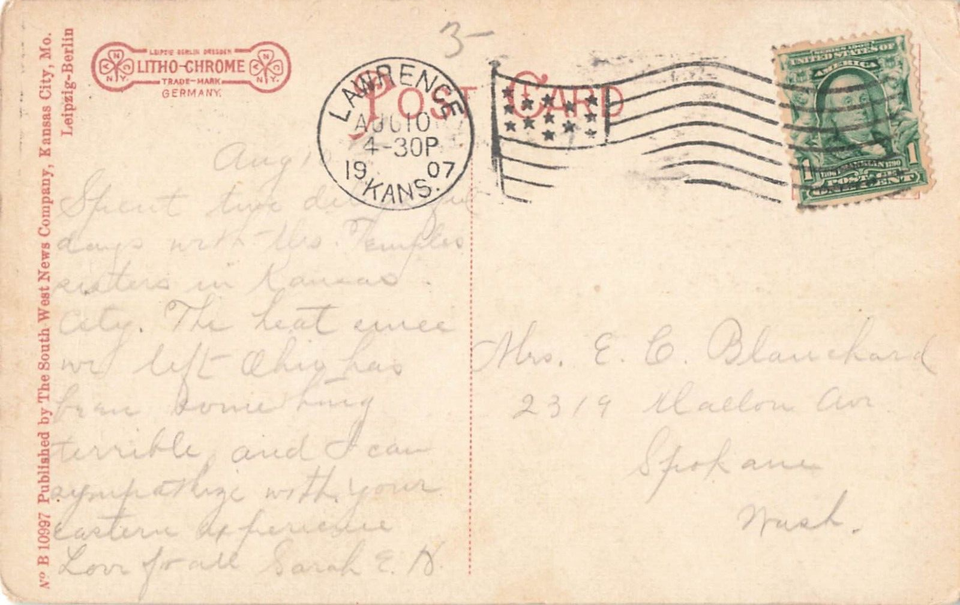 3-
LEIPZIG BERLIN DRESDEN
LITHO-CHROME
TRADE-MARK
GERMANY.
POST CARD
LAWRENCE
AUG 10
4-30P
19 07
KANS.
SERIES 1902
UNITED STATES OF
AMERICA
FRANKLIN
1 POSTAGE 1
ONE CENT
No B 10997 Published by The South-West News Company, Kansas City, Mo.
Leipzig-Berlin
Aug 10
Spent
days with Mrs. Temples
sisters in Kansas
City. The heat since
we left Ohio has
been something
terrible and I can
sympathize with your
eastern experience
Love for all Sarah E. N.
Mrs. E. C. Blanchard
2319 Mallon Ave
Spokane
Wash.